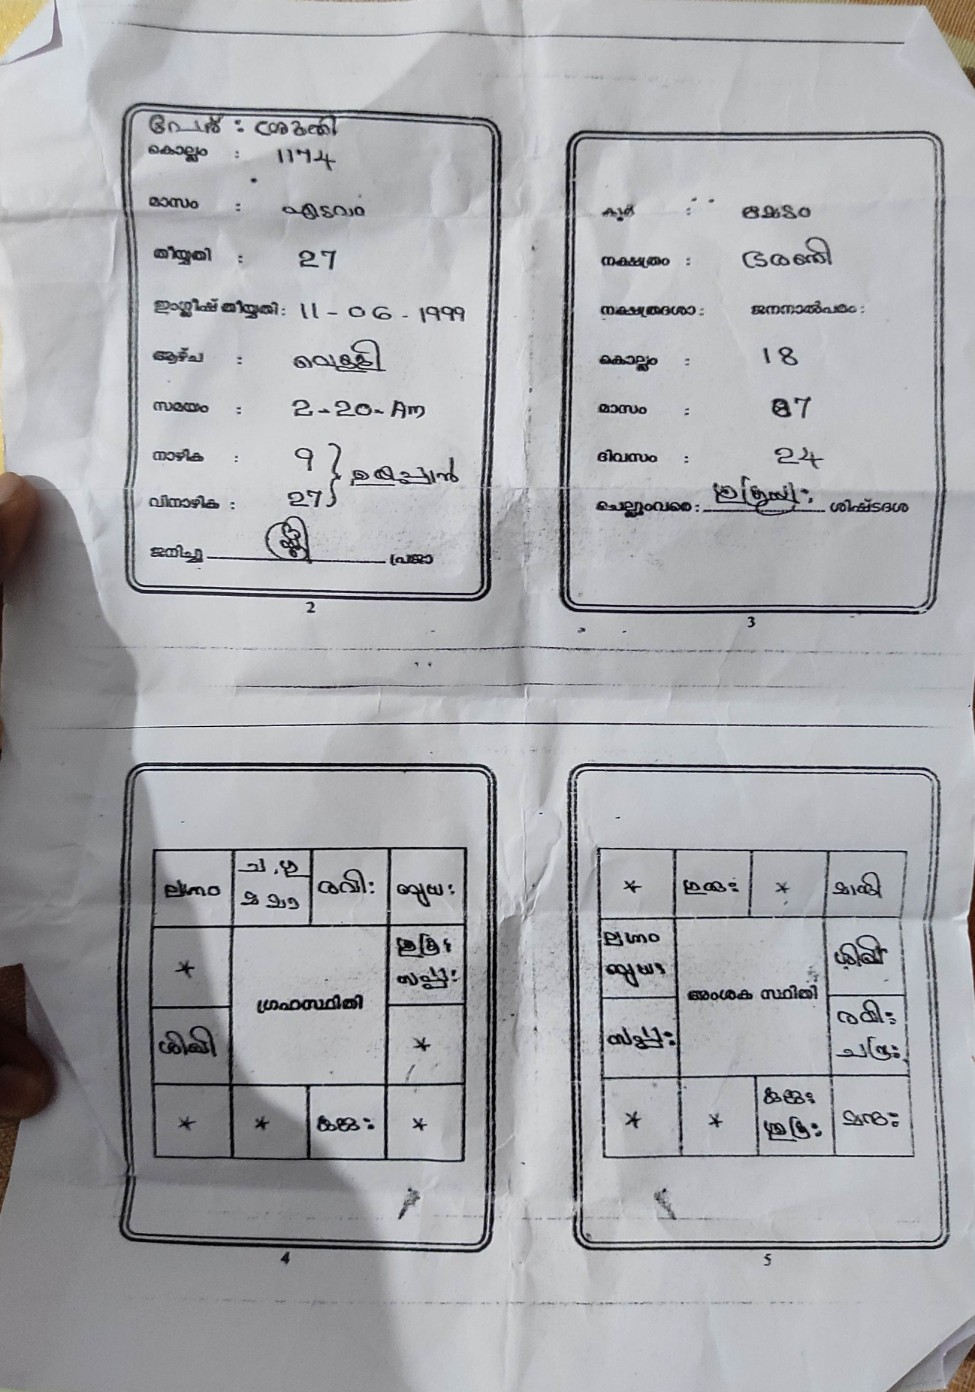 പേര് : ശ്രുതി
കൊല്ലം : 1174
മാസം : എടവം
തീയ്യതി : 27
ഇംഗ്ലീഷ് തീയ്യതി : 11-06-1999
ആഴ്ച : വെള്ളി
സമയം : 2-20-Am
നാഴിക : 9
വിനാഴിക : 27
ഉദയപ്പാൻ
ജനിച്ചു സ്ത്രീ പ്രജാ
2
കൂർ : മേടം
നക്ഷത്രം : ഭരണി
നക്ഷത്രദശാ : ജനനാൽപരം :
കൊല്ലം : 18
മാസം : 07
ദിവസം : 24
ചെല്ലുംവരെ : ശുക്ര ശിഷ്ടദശ
3
ലഗ്നം ച, ഗു രവി: ബുധ:
മ മാ
* ശുക്ര: സർപ്പ:
ഗ്രഹസ്ഥിതി
ശിഖി *
* * കുജ: *
4
* ഗുരു: * മാന്ദി
ലഗ്നം ബുധ: ശിഖി
അംശക സ്ഥിതി
സർപ്പ: രവി: ചന്ദ്ര:
* * കുജ: ശുക്ര: മന്ദ:
5